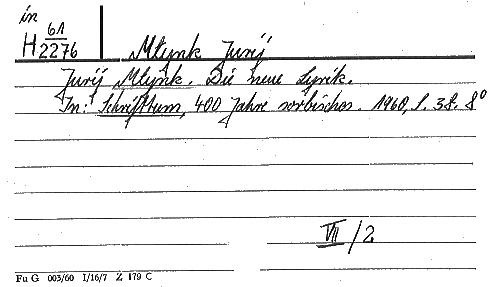 in
H 61/2276
Młynk Jurij
Jurij Młynk. Die neue Lyrik.
In: Schrifttum, 400 Jahre sorbisches. 1960, S. 38. 8°
VII/2
Fu G 003/60 I/16/7 Z 179 C